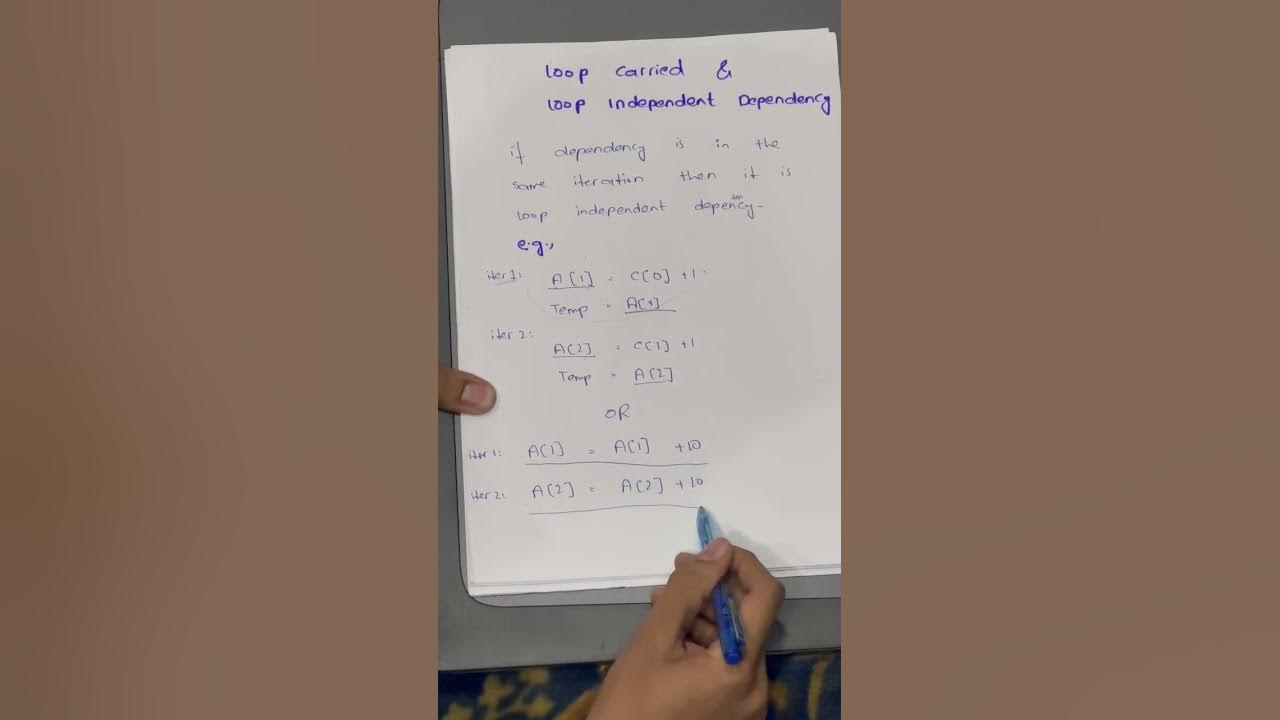 loop carried &
loop Independent Dependency
if dependency is in the
same iteration then it is
loop independent depency-
e.g.,
iter 1: A[1] = C[0] +1
Temp = A[1]
iter 2:
A[2] = C[1] +1
Temp = A[2]
OR
iter 1: A[1] = A[1] +10
iter 2: A[2] = A[2] +10